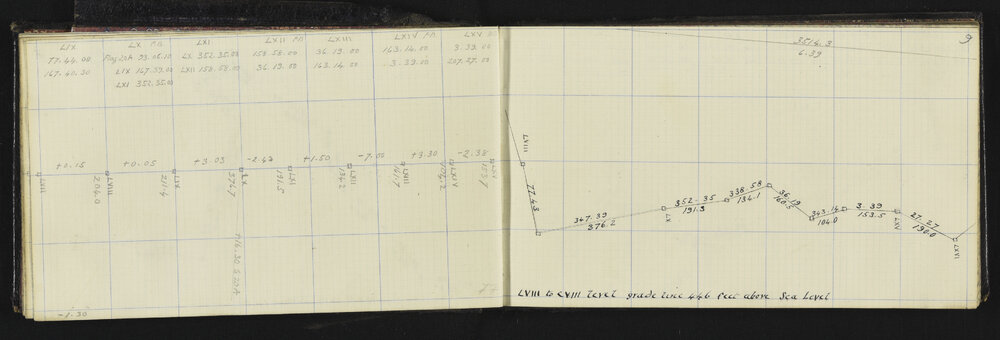 LIX LX LXI LXII LXIII LXIV LXV
77.44.00 99.06.10 LX 352.35.00 158.58.00 36.19.00 163.14.00 3.39.00
167.40.30 LIX 167.39.00 LXII 158.58.00 36.19.00 163.14.00 3.39.00 207.27.00
LXI 352.35.00
+0.15 +0.05 +3.03 -2.43 +1.50 -7.00 +3.30 -2.38
LVII LVIII LIX LX LXI LXII LXIII LXIV LXV
204.0 211.4 376.7 191.5 134.2 161.7 153.7
-1.30
9
3514.3
6.39
LVIII
77.43
347.39
376.2
LX
352-35
191.3
338.58
134.1
36.19
160.5
343.14
104.0
3-39
153.5
LXV
27.27
190.0
LXVI
LVIII to CVIII level grade line 446 feet above Sea Level